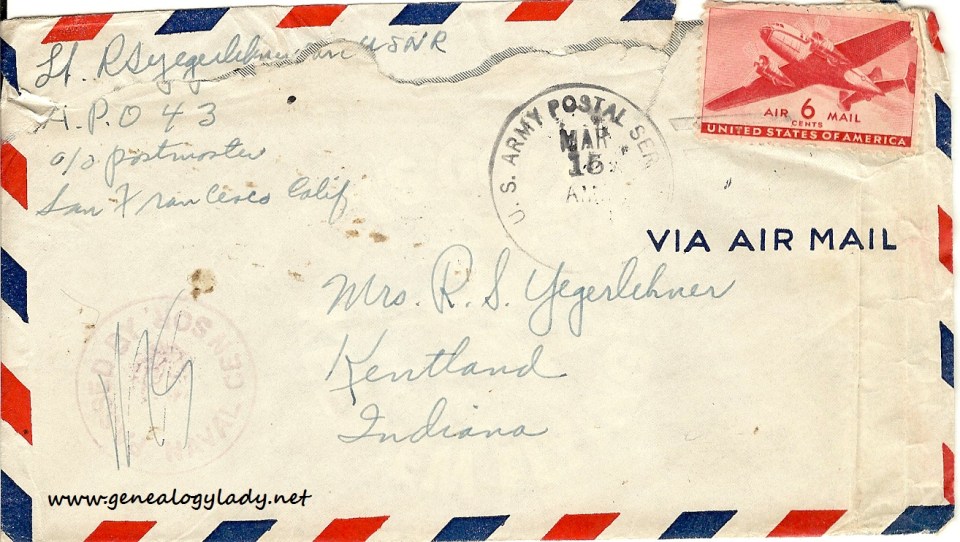 Lt. R S Yegerlehner USNR
A.P.O 43
c/o postmaster
San Francisco Calif
U. S. ARMY POSTAL SER
MAR
15
AIR 6 MAIL
CENTS
UNITED STATES OF AMERICA
VIA AIR MAIL
Mrs. R. S. Yegerlehner
Kentland
Indiana
NAVAL
www.genealogylady.net